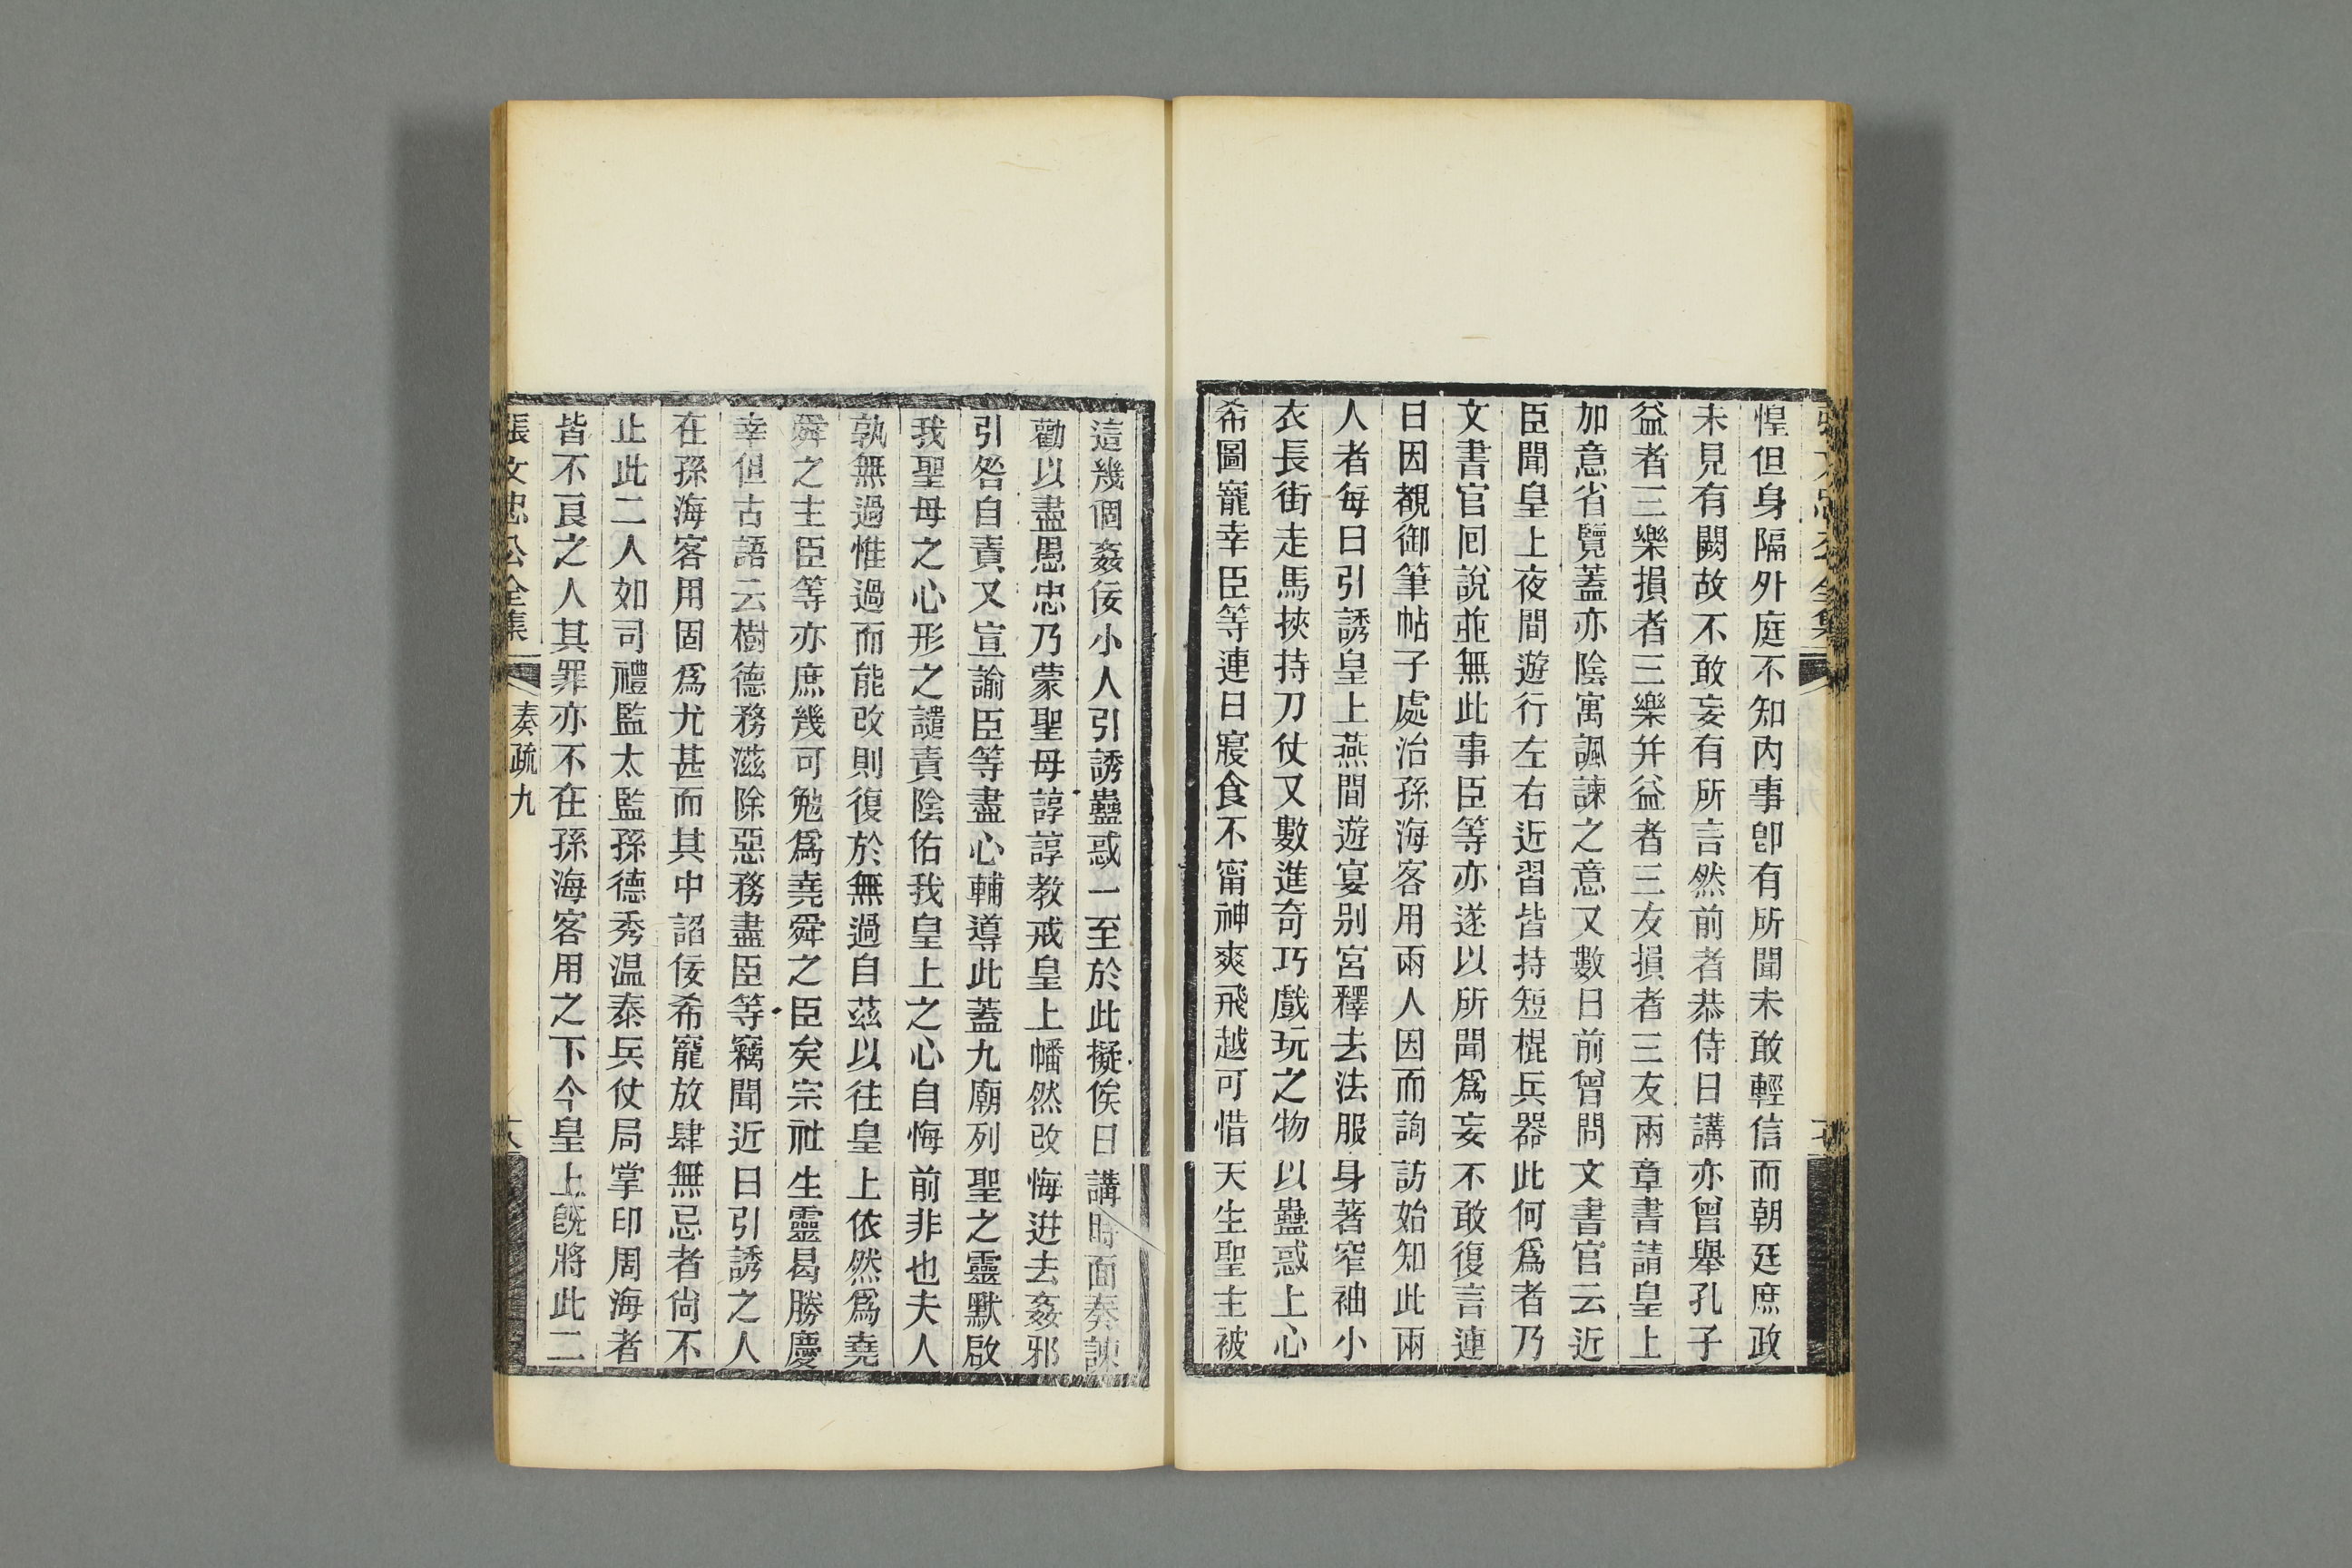 惶但身隔外庭不知內事卽有所聞未敢輕信而朝廷庶政
未見有闕故不敢妄有所言然前者恭侍日講亦曾舉孔子
益者三樂損者三樂并益者三友損者三友兩章書請皇上
加意省覽蓋亦陰寓諷諫之意又數日前曾問文書官云近
臣聞皇上夜間遊行左右近習皆持短棍兵器此何爲者乃
文書官回說並無此事臣等亦遂以所聞爲妄不敢復言連
日因覩御筆帖子處治孫海客用兩人因而詢訪始知此兩
人者每日引誘皇上燕間遊宴别宮釋去法服身著窄袖小
衣長街走馬挾持刀仗又數進奇巧戲玩之物以蠱惑上心
希圖寵幸臣等連日寢食不甯神爽飛越可惜天生聖主被
這幾個姦佞小人引誘蠱惑一至於此擬俟日講時面奏諫
勸以盡愚忠乃蒙聖母諄諄教戒皇上幡然改悔迸去姦邪
引咎自責又宣諭臣等盡心輔導此蓋九廟列聖之靈默啟
我聖母之心形之譴責陰佑我皇上之心自悔前非也夫人
孰無過惟過而能改則復於無過自茲以往皇上依然爲堯
舜之主臣等亦庶幾可勉爲堯舜之臣矣宗社生靈曷勝慶
幸但古語云樹德務滋除惡務盡臣等竊聞近日引誘之人
在孫海客用固爲尤甚而其中諂佞希寵放肆無忌者尙不
止此二人如司禮監太監孫德秀温泰兵仗局掌印周海者
皆不良之人其罪亦不在孫海客用之下今皇上旣將此二
張文忠公全集 奏疏九